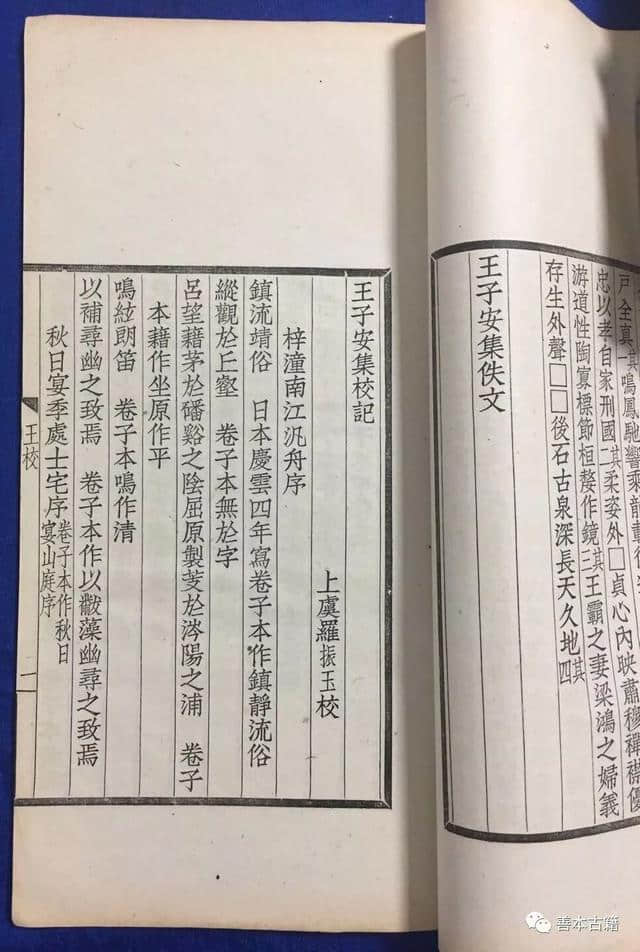 戶全真其一鳴鳳馳響乘龍
忠以孝自家刑國其二柔姿外□貞心內映肅穆禪襟優
游道性陶寡標節桓嫠作鏡其三王霸之妻梁鴻之婦義
存生外聲□□後石古泉深長天久地其四
王子安集佚文
王子安集校記
上虞羅振玉校
梓潼南江汎舟序
鎮流靖俗 日本慶雲四年寫卷子本作鎮靜流俗
縱觀於丘壑 卷子本無於字
呂望藉茅於磻谿之陰屈原製芰於涔陽之浦 卷子
本藉作坐原作平
鳴絃朗笛 卷子本鳴作清
以補尋幽之致焉 卷子本作以黻藻幽尋之致焉
秋日宴季處士宅序卷子本作秋日宴山庭序
王校
一
善本古籍